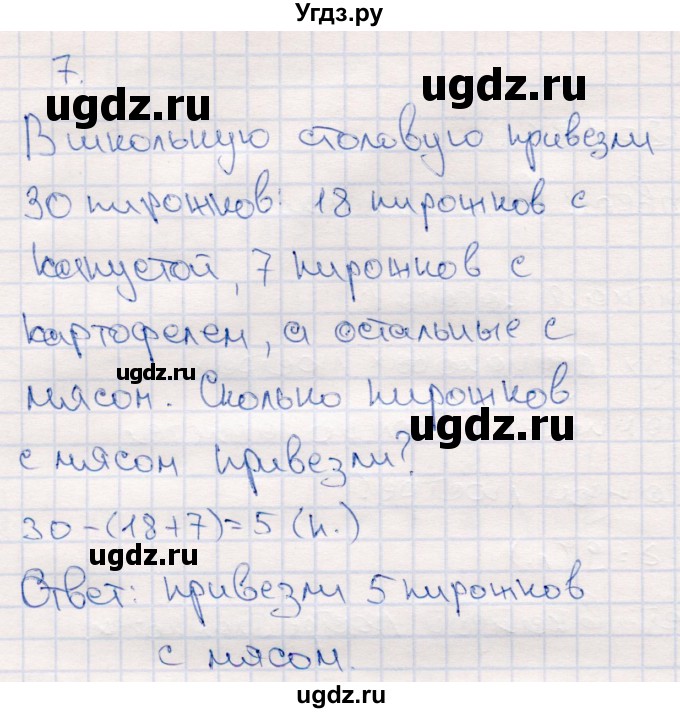 Угдз.ру
7.
ugdz.ru
В школьную столовую привезли
30 пирожков: 18 пирожков с
ugdz.ru
капустой, 7 пирожков с
картофелем, а остальные с
ugdz.ru
мясом. Сколько пирожков
ugdz.ru
с мясом привезли?
30-(18+7)=5 (п.)
ugdz.ru
Ответ: привезли 5 пирожков
с мясом.
ugdz.ru